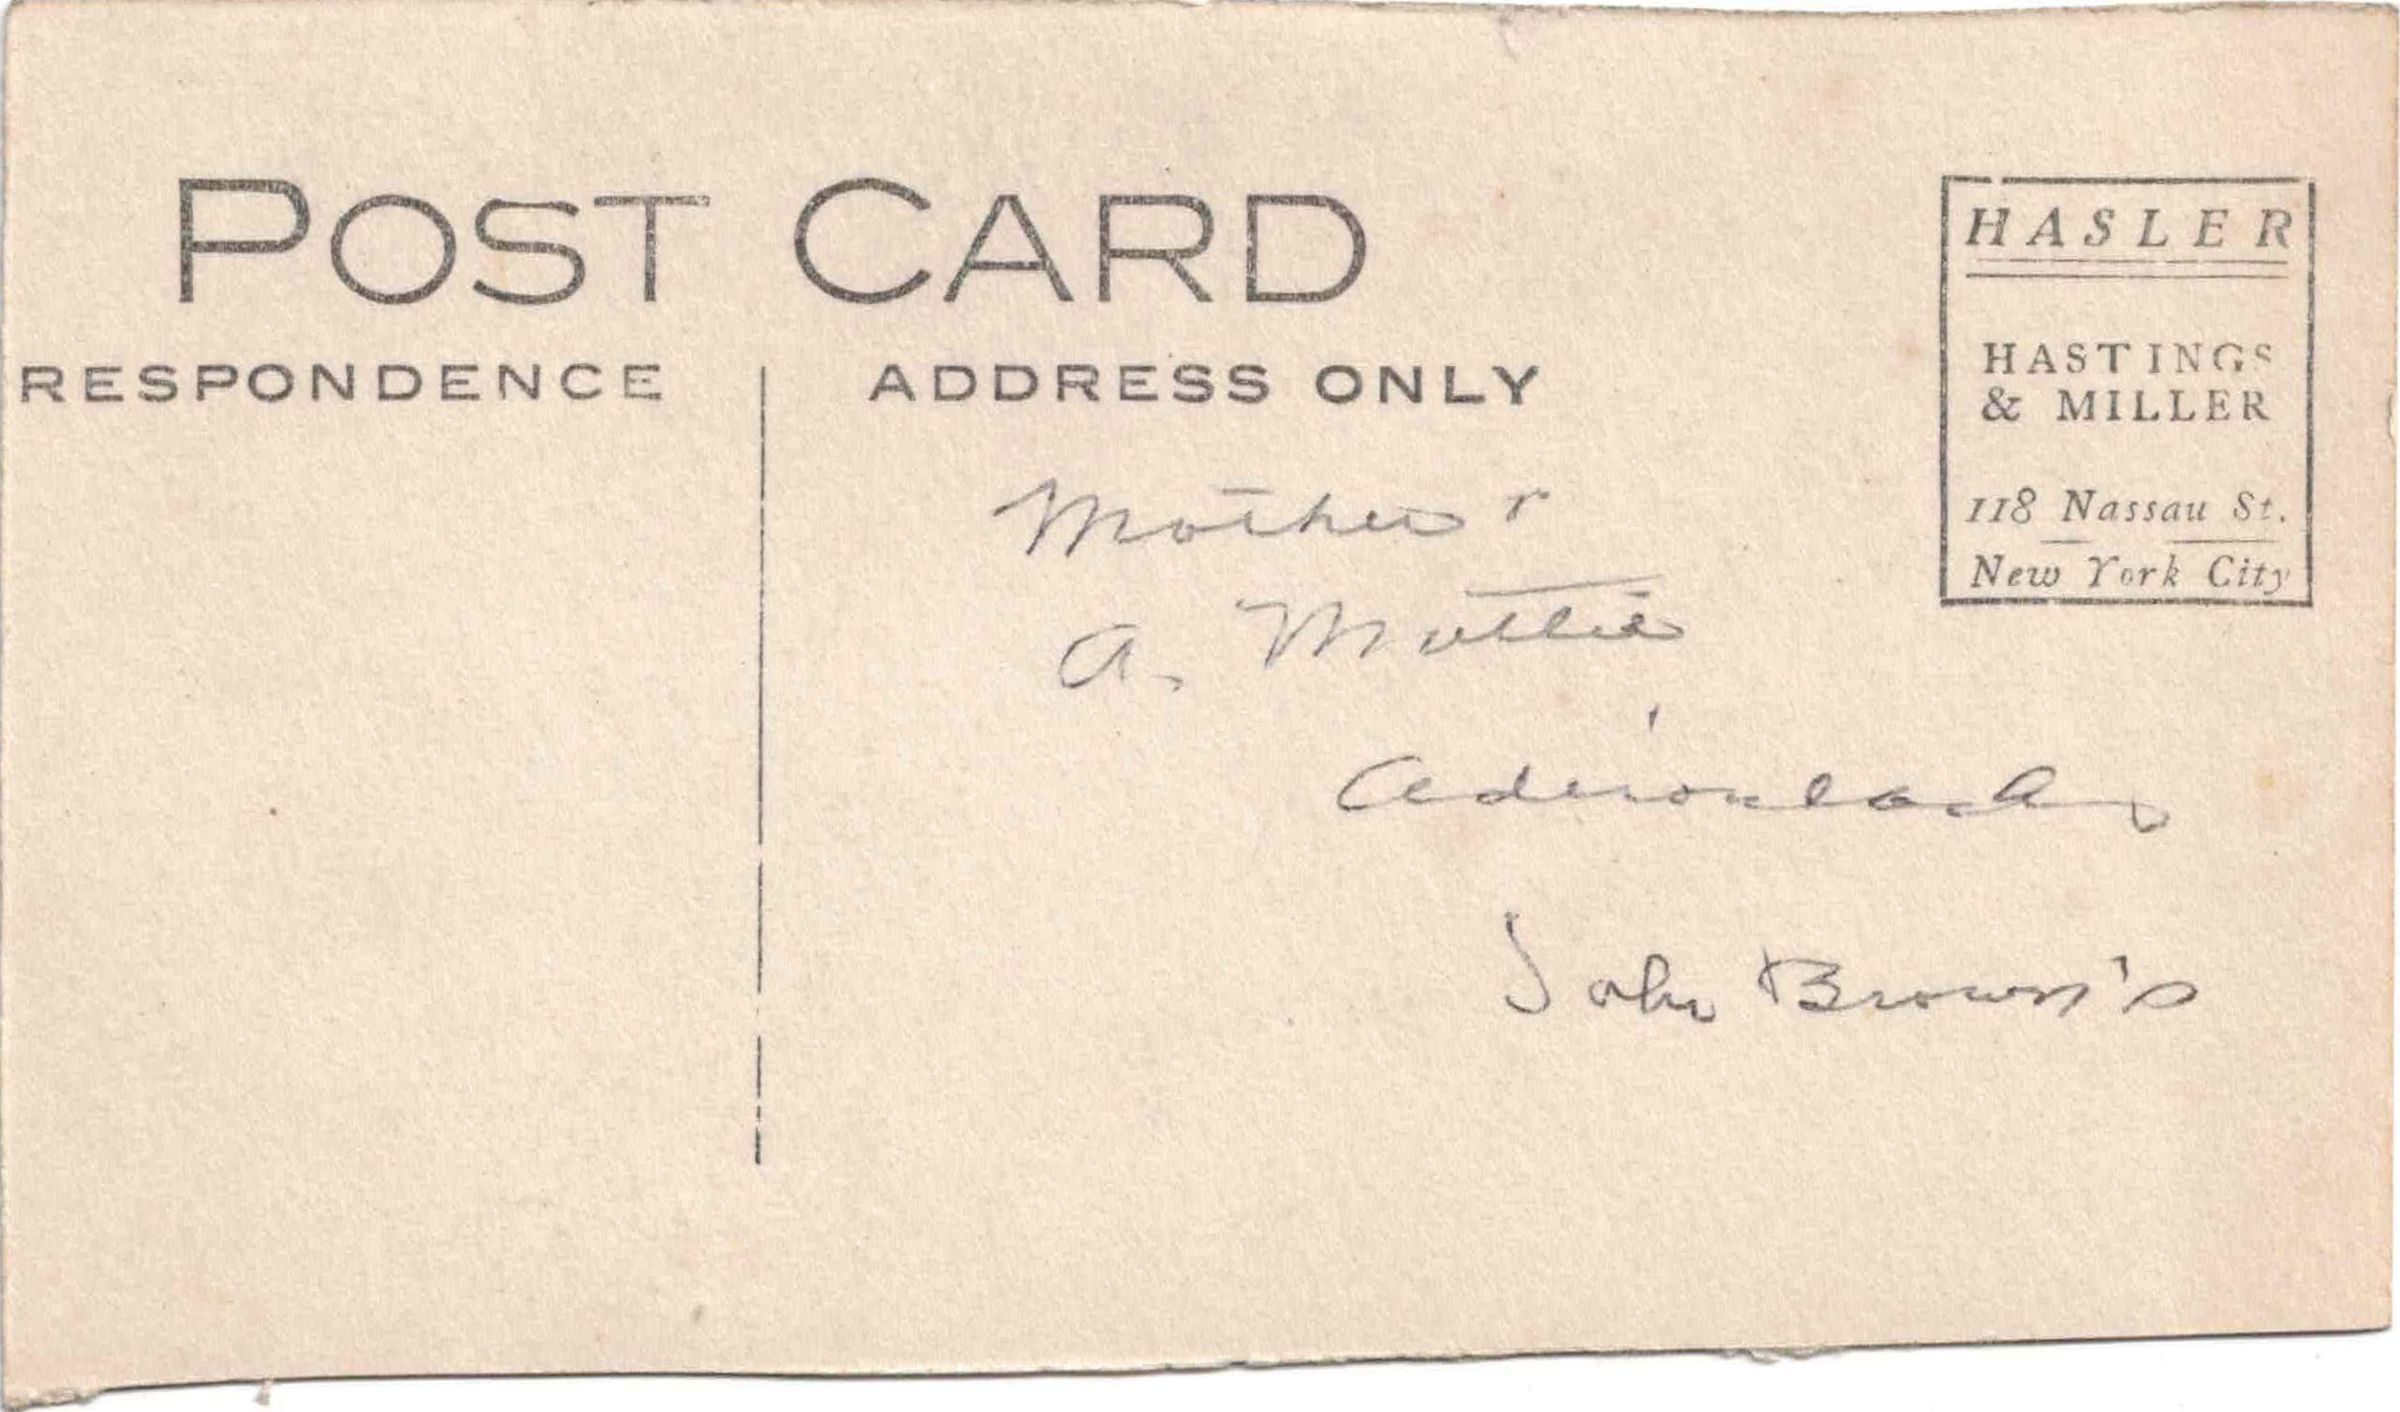 POST CARD
RESPONDENCE
ADDRESS ONLY
HASLER
HASTINGS
& MILLER
118 Nassau St.
New York City
Mother +
A. Mattie
Adirondacks
John Brown's